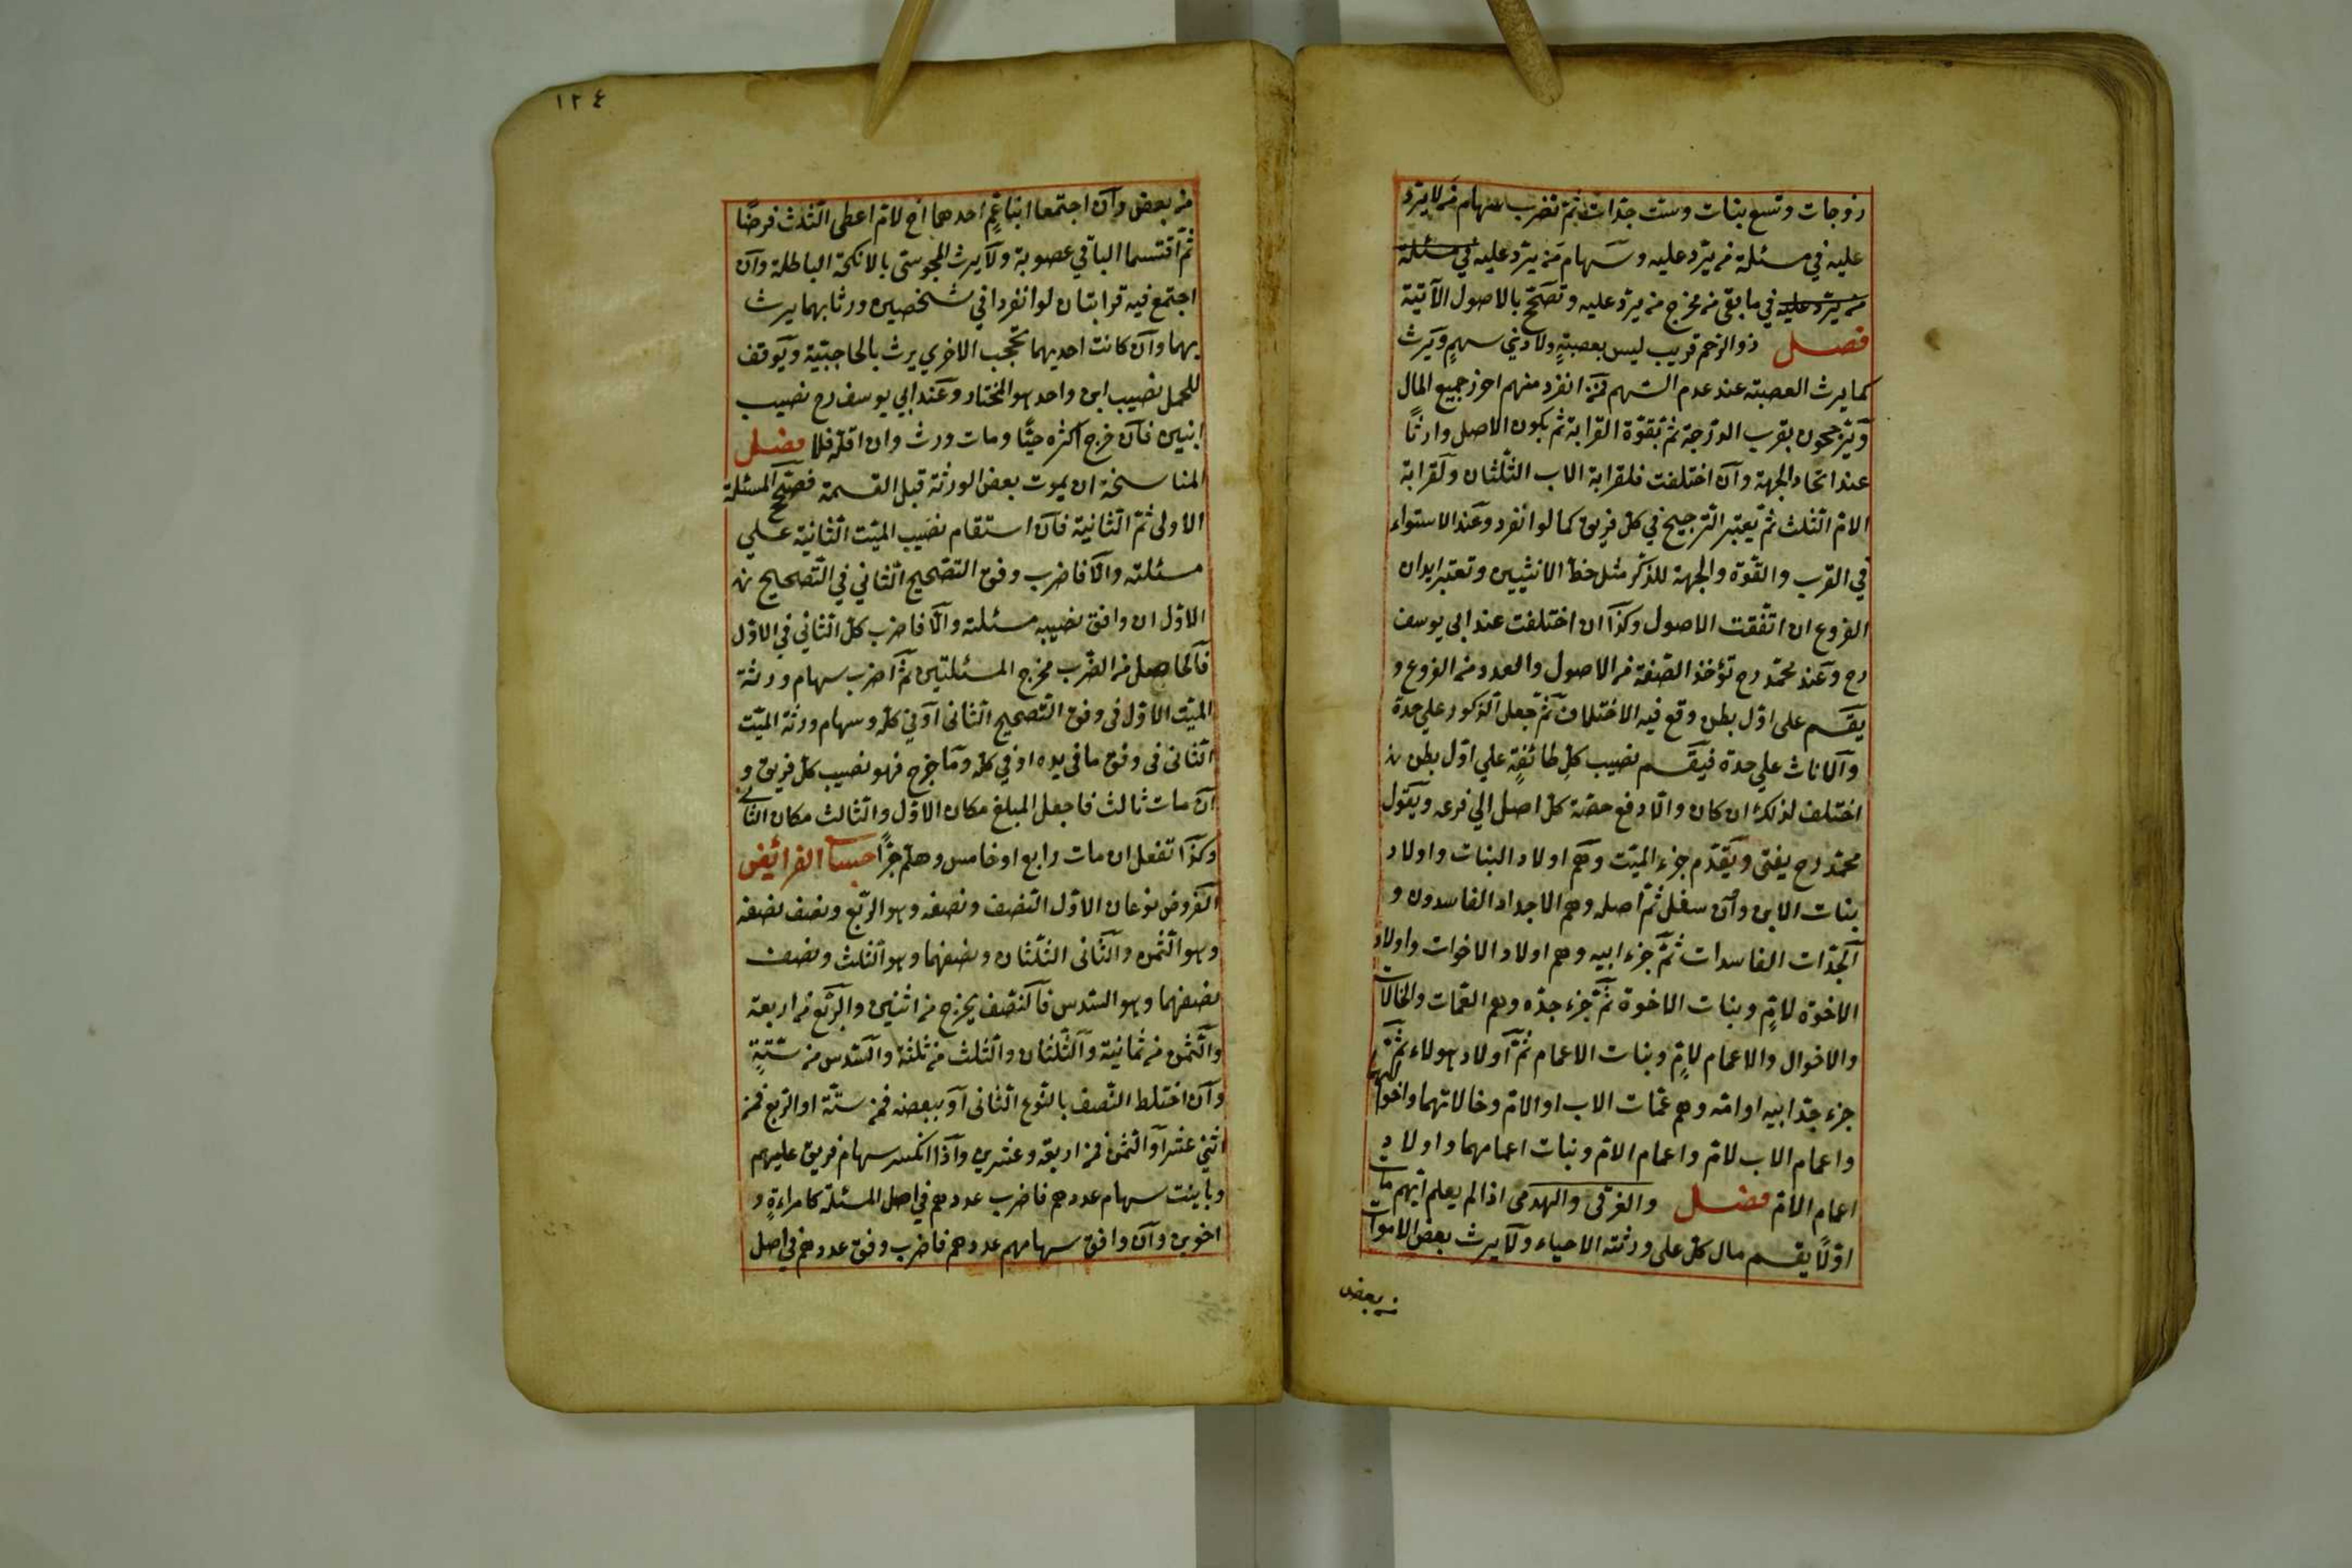 زوجات وتسع بنات وست جدات ثمّ تضرب سهام من لا يردّ
عليه في مسئلة من يردّ عليه وسهام من يردّ عليه في مسئلة
من يردّ عليه في ما بقى من مخرج من يردّ عليه وتصحّ بالاصول الآتية
فصل ذو الرحم قريب ليس بعصبةٍ ولا ذي سهمٍ ويرث
كما يرث العصبة عند عدم السّهم فمن انفرد منهم احرز جميع المال
ويرجحون بقرب الدرجة ثم بقوّة القرابة ثم بكون الاصل وارثًا
عند اتحاد الجهة وان اختلفت فلقرابة الاب الثّلثان ولقرابة
الامّ الثّلث ثمّ يعتبر التّرجيح في كلّ فريق كما لو انفرد وعند الاستواء
في القرب والقوّة والجهة للذّكر مثل حظّ الانثيين وتعتبر ابدان
الفروع ان اتّفقت الاصول وكذا ان اختلفت عند ابي يوسف
رح وعند محمّد رح تؤخذ الصّفة من الاصول والعدد من الفروع و
يقسم على اوّل بطن وقع فيه الاختلاف ثمّ جعل الذكور علي حدة
والاناث علي حدة فيقسم نصيب كلّ طائفةٍ علي اوّل بطن
اختلف لذلك ان كان والّا دفع حصّة كلّ اصل الي فرعه وبقول
محمّد رح يفتى ويقدّم جزء الميّت وهم اولاد البنات واولاد
بنات الابن وان سفل ثمّ اصله وهم الاجداد الفاسدون و
الجدّات الفاسدات ثمّ جزء ابيه وهم اولاد الاخوات واولاد
الاخوة لامٍّ وبنات الاخوة ثمّ جزء جدّه وهم العمّات والخالات
والاخوال والاعمام لامٍّ وبنات الاعمام ثمّ اولاد هولاء ثمّ
جزء جدّ ابيه او امّه وهم عمّات الاب او الامّ وخالاتهما واخوالهما
واعمام الاب لامّ واعمام الامّ وبنات اعمامهما واولاد
اعمام الامّ فصل والغرقى والهدمى اذا لم يعلم ايّهم مات
اوّلًا يقسم مال كلّ على ورثته الاحياء ولا يرث بعض الاموات
من بعض
١٢٤
من بعض وان اجتمعا ابنا عمٍّ احدهما اخ لامّ اعطى الثّلث فرضًا
ثمّ اقتسما الباقي عصوبة ولا يرث المجوسيّ بالانكحة الباطلة وان
اجتمع فيه قرابتان لو انفردا في شخصين ورثا بهما يرث
بهما وان كانت احديهما تحجب الاخري يرث بالحاجبية ويوقف
للحمل نصيب ابن واحد هو المختار وعند ابي يوسف رح نصيب
ابنين فان خرج اكثره حيًّا ومات ورث وان اقلّه فلا فصل
المناسخة ان يموت بعض الورثة قبل القسمة فصحّح المسئلة
الاولى ثمّ الثّانية فان استقام نصيب الميّت الثّانية علي
مسئلته والّا فاضرب وفق التصحيح الثّاني في التّصحيح
الاوّل ان وافق نصيبه مسئلته والّا فاضرب كلّ الثّاني في الاوّل
فالحاصل من الضّرب مخرج المسئلتين ثمّ اضرب سهام ورثة
الميّت الاوّل في وفق التّصحيح الثّاني او في كلّه وسهام ورثة الميّت
الثّاني في وفق ما في يده او في كلّه وما خرج فهو نصيب كلّ فريق و
ان مات ثالث فاجعل المبلغ مكان الاوّل والثّالث مكان الثّاني
وكذا تفعل ان مات رابع او خامس وهلمّ جرًّا حساب الفرائض
الفروض نوعان الاوّل النّصف ونصفه وهو الرّبع ونصف نصفه
وهو الثّمن والثّاني الثّلثان ونصفهما وهو الثّلث ونصف
نصفهما وهو السّدس فالنّصف يخرج من اثنين والرّبع من اربعة
والثّمن من ثمانية والثّلثان والثّلث من ثلثة والسّدس من ستّةٍ
وان اختلط النّصف بالنّوع الثّاني او ببعضه فمن ستّة او الرّبع فمن
اثني عشر او الثّمن فمن اربعة وعشرين واذا انكسر سهام فريق عليهم
وباينت سهام عددهم فاضرب عددهم في اصل المسئلة كامراءةٍ و
اخوين وان وافق سهامهم عددهم فاضرب وفق عددهم في اصل